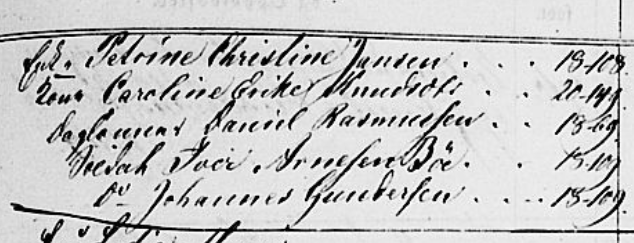 Enke Petrine Christine Jansen . . . 18-108.
Kone Caroline Enke Knudsdtr . . 20-149.
Daglønner Daniel Rasmussen . . 18-69.
Soldat Iver Arnesen Bøe . . 18-109
Do Johannes Gundersen . . . 18-109.